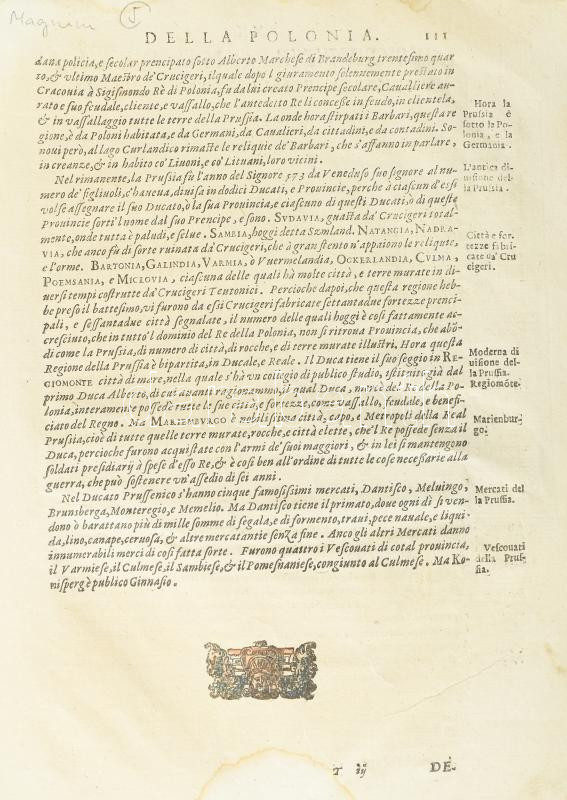 Magnini 5
DELLA POLONIA. III
dana policia, e secolar prencipato sotto Alberto Marchese di Brandeburg trentesimo quar
to, & vltimo Maestro de' Crucigeri, ilquale dopo l giuramento solennemente prestato in
Cracouia à Sigismondo Rè di Polonia, fù da lui creato Prencipe secolare, Caualliere au-
rato e suo feudale, cliente, e vassallo, che l'antedetto Re li concesse in feudo, in clientela,
& in vassallaggio tutte le terre della Prussia. La onde hora stirpati i Barbari, questa re
gione, è da Poloni habitata, e da Germani, da Caualieri, da cittadini, e da contadini. So-
noui però, al lago Curlandico rimaste le reliquie de' Barbari, che s'affanno in parlare,
in creanze, & in habito co' Liuoni, e co' Lituani, loro vicini.
Hora la
Prussia è
sotto la Po-
lonia, e la
Germania.
Nel rimanente, la Prussia fù l'anno del Signore 573 da Veneduso suo signore al nu-
mero de' figliuoli, c'haueua, diuisa in dodici Ducati, e Prouincie, perche à ciascun d'essi
volse assegnare il suo Ducato, ò la sua Prouincia, e ciascuno di questi Ducati, ò di queste
Prouincie sortì 'l nome dal suo Prencipe, e sono. SVDAVIA, guasta da' Crucigeri total-
mente, onde tutta è paludi, e selue. SAMBIA, hoggi detta Szmland. NATANGIA, NADRA-
VIA, che anco fù di sorte ruinata da' Crucigeri, che à gran stento n'appaiono le reliquie,
e l'orme. BARTONIA, GALINDIA, VARMIA, ò Vuermelandia, OCKERLANDIA, CVLMA,
POEMSANIA, e MICLOVIA, ciascuna delle quali hà molte città, e terre murate in di-
uersi tempi costrutte da' Crucigeri Teutonici. Percioche dapoi, che questa regione heb-
be preso il battesimo, vi furono da essi Crucigeri fabricate settantadue fortezze prenci-
pali, e sessantadue città segnalate, il numero delle quali hoggi è così fattamente ac-
cresciuto, che in tutto 'l dominio del Re della Polonia, non si ritroua Prouincia, che abõ-
di come la Prussia, di numero di città, di rocche, e di terre murate illustri. Hora questa
Regione della Prussia è bipartita, in Ducale, e Reale. Il Duca tiene il suo seggio in RE-
GIOMONTE città di mare, nella quale s'hà vn colegio di publico studio, istituito già dal
primo Duca Alberto, di cui auanti ragionammo, il qual Duca, mercè del Re della Po-
lonia, interamente possedè tutte le sue città, e fortezze, come vassallo, feudale, e benefi-
ciato del Regno. Ma MARIEMBVRGO è nobilissima città, capo, e Metropoli della Real
Prussia, cioè di tutte quelle terre murate, rocche, e città elette, che 'l Re possede senza il
Duca, percioche furono acquistate con l'armi de' suoi maggiori, & in lei si mantengono
soldati presidiarij à spese d'esso Re, & è così ben all'ordine di tutte le cose necessarie alla
guerra, che può sostenere vn'assedio di sei anni.
L'antica di-
uisione del-
la Prussia.
Città e for-
tezze fabri-
cate da' Cru
cigeri.
Moderna di
uisione del-
la Prussia.
Regiomõte.
Marienbur-
go.
Nel Ducato Prussenico s'hanno cinque famosissimi mercati, Dantisco, Meluingo,
Brunsberga, Monteregio, e Memelio. Ma Dantisco tiene il primato, doue ogni dì si ven-
dono ò barattano più di mille somme di segala, e di formento, traui, pece nauale, e liqui-
da, lino, canape, ceruosa, & altre mercatantie senza fine. Anco gli altri Mercati danno
innumerabili merci di così fatta sorte. Furono quattro i Vescouati di cotal prouincia,
il Varmiese, il Culmese, il Sambiese, & il Pomesaniese, congiunto al Culmese. Ma Ko-
nisperg è publico Ginnasio.
Mercati del
la Prussia.
Vescouati
della Prus-
sia.
T iij DE-